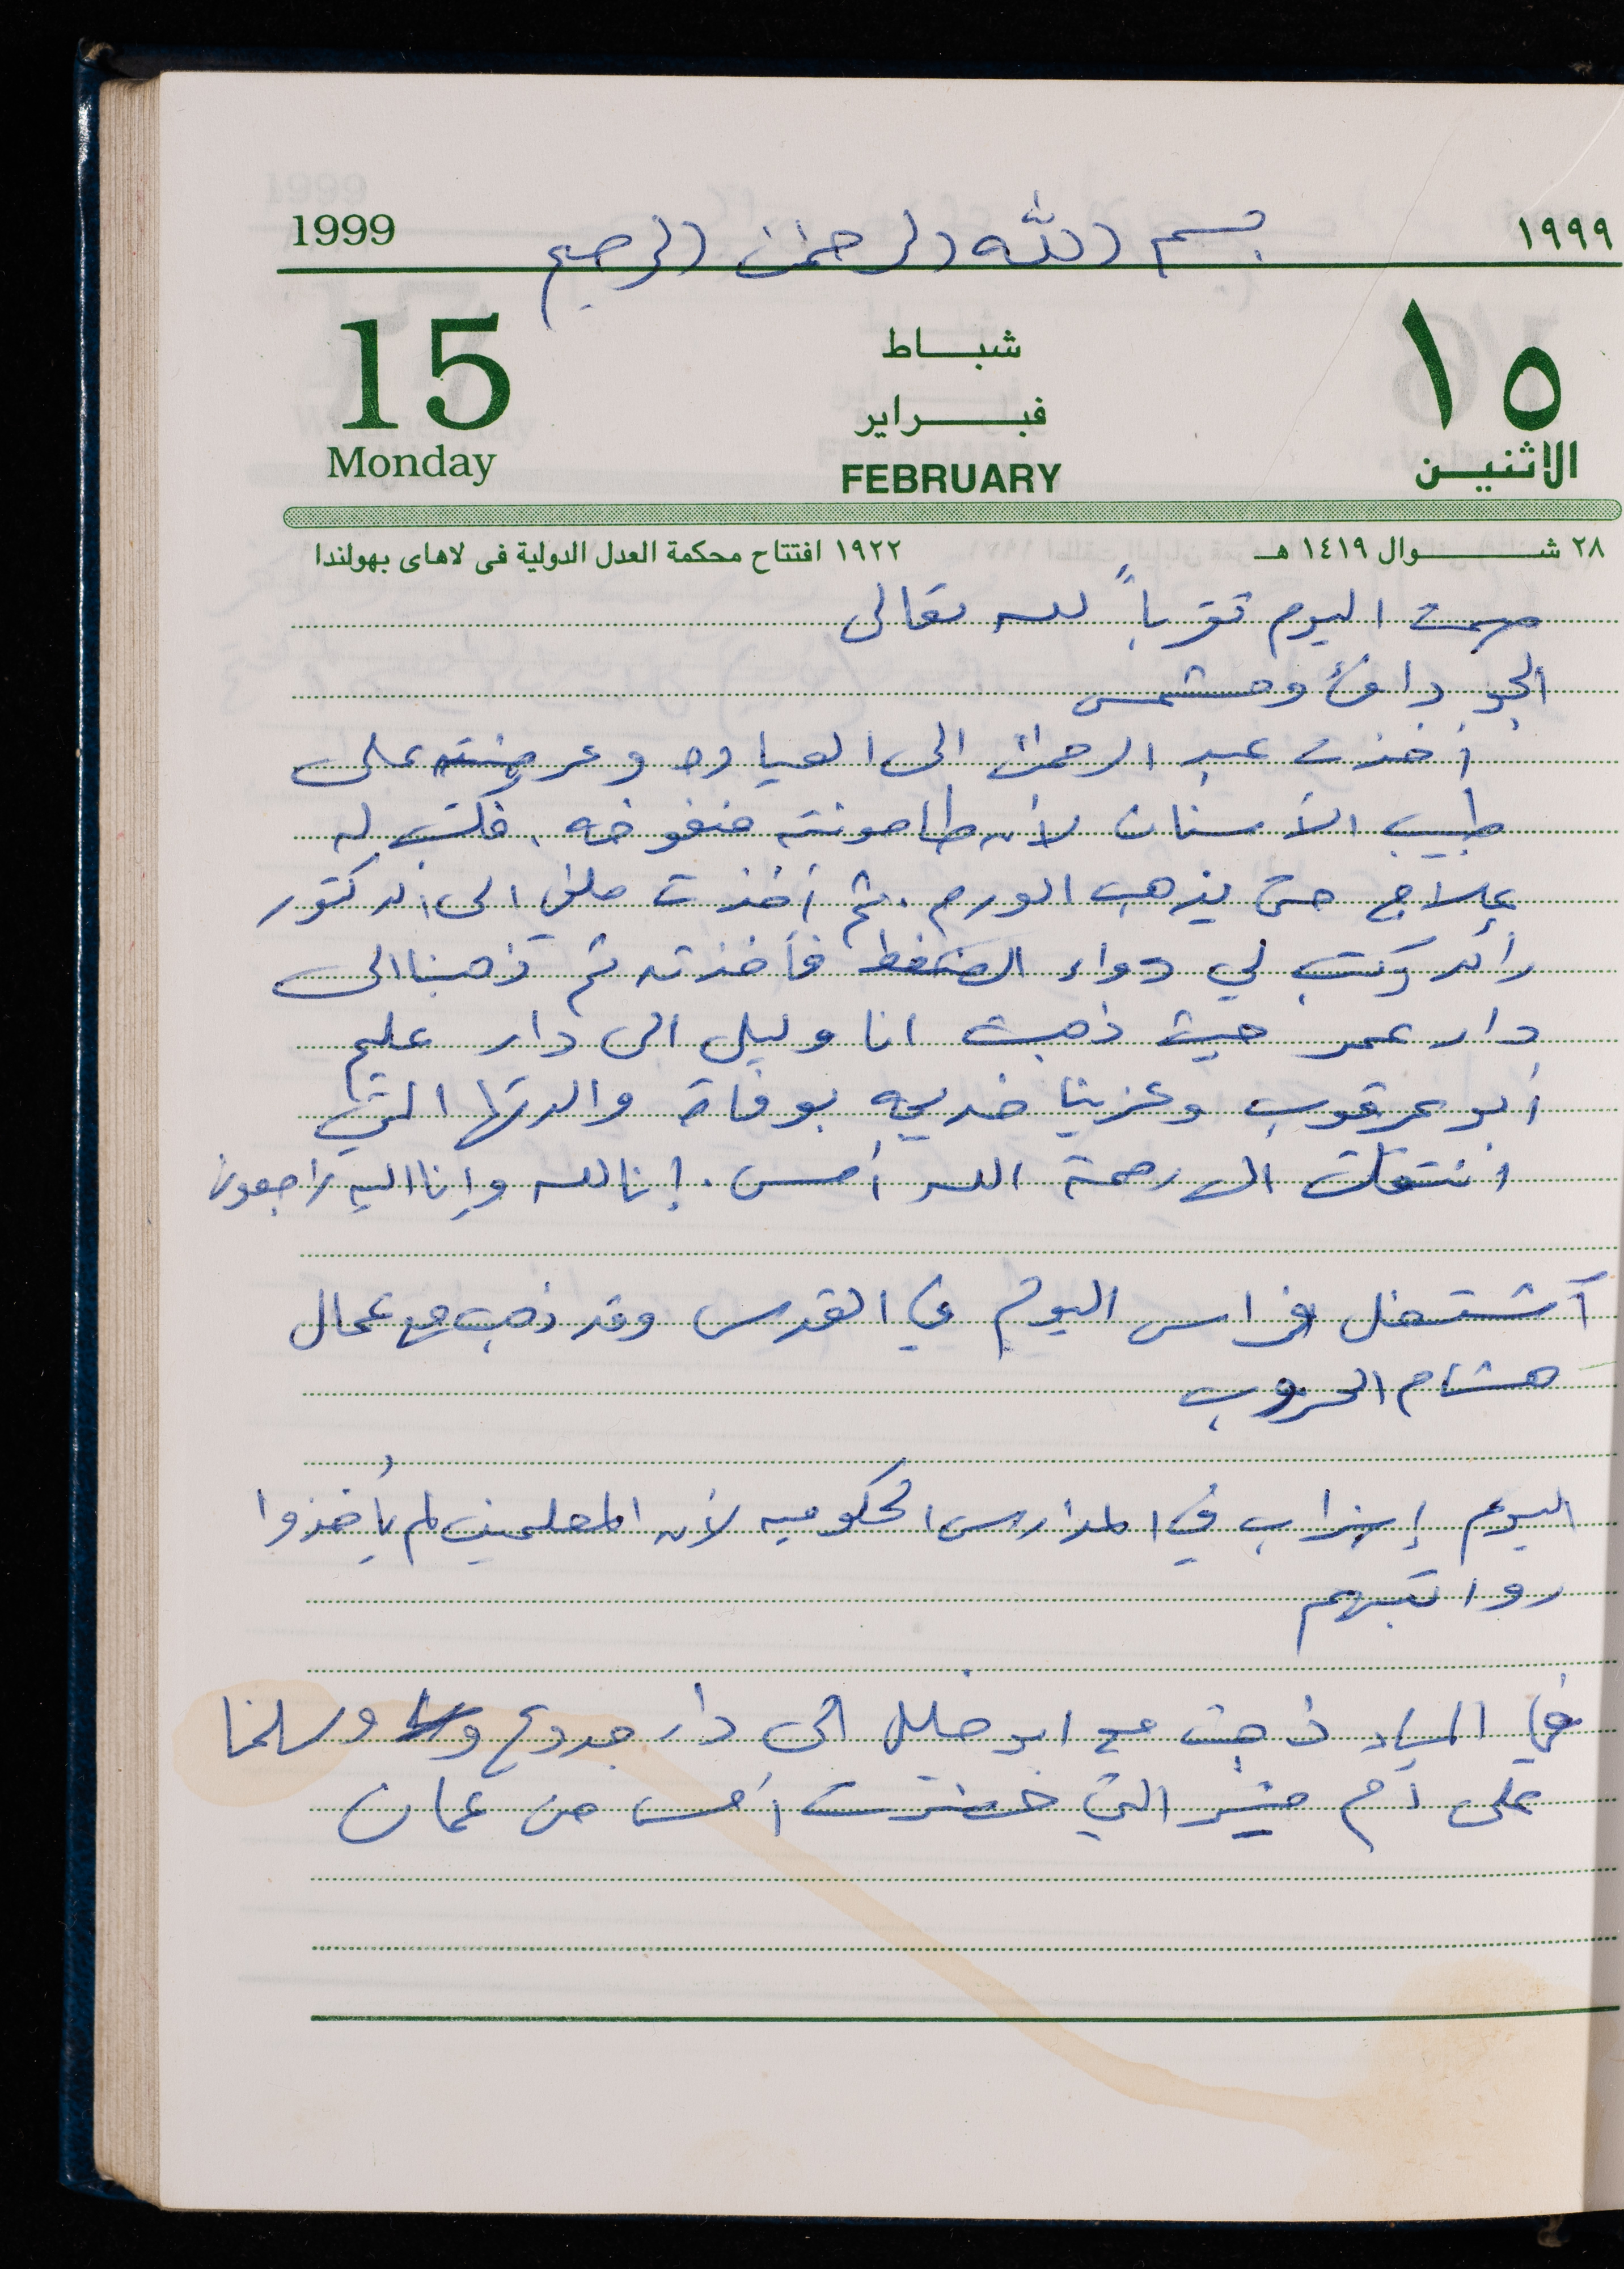 1999 بسم الله الرحمن الرحيم ١٩٩٩
15 شباط ١٥
فبراير
Monday FEBRUARY الاثنين
٢٨ شوال ١٤١٩ هـ ١٩٢٢ افتتاح محكمة العدل الدولية فى لاهاى بهولندا
صمت اليوم تقرباً لله تعالى
الجو دافئ ومشمس
أخذت عبد الرحمن الى العياده وعرضته على
طبيب الأسنان لأن طاحونته منفوخه. فكتب له
علاج حتى يذهب الورم. ثم أخذت ملفي الى الدكتور
رائد وكتب لي دواء الضغط فأخذته ثم ذهبنا الى
دار عمر حيث ذهبت انا وليلى الى دار عليم
أبو عرقوب وعزينا خديجه بوفاة والدتها التي
انتقلت الى رحمة الله أمس. إنا لله وإنا اليه راجعون
آشتغل فراس اليوم في القدس وقد ذهب مع عمال
هشام الحروب
اليوم إضراب في المدارس الحكوميه لأن المعلمين لم يأخذوا
رواتبهم
في المساء ذهبت مع ابو خليل الى دار جدوع وسلمنا
على أم منير التي حضرت أمس من عمان